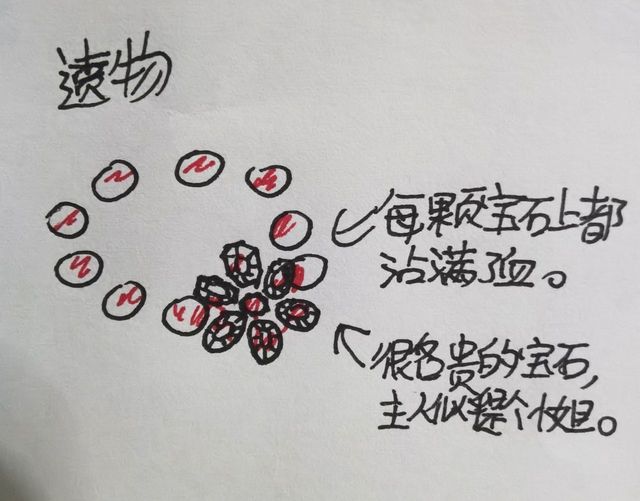 遗物
每颗宝石上都
沾满了血。
很名贵的宝石,
主人似乎是个